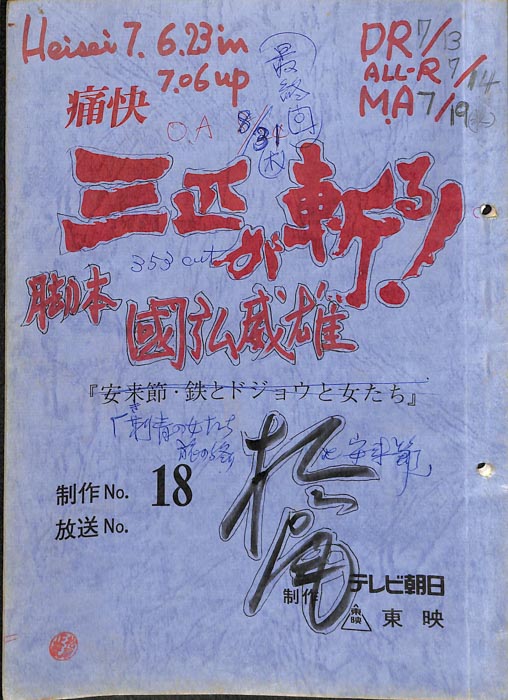 Heisei 7. 6.23 in
7.06 up
最終回
DR 7/13
ALL-R 7/14
M.A 7/19
痛快
O.A 8/31
(木)
三匹が斬る!
353 cut
脚本 國弘威雄
『安来節・鉄とドジョウと女たち』
「刺青の女たち
安来節」
制作No. 18
放送No.
制作 テレビ朝日
東映 東映